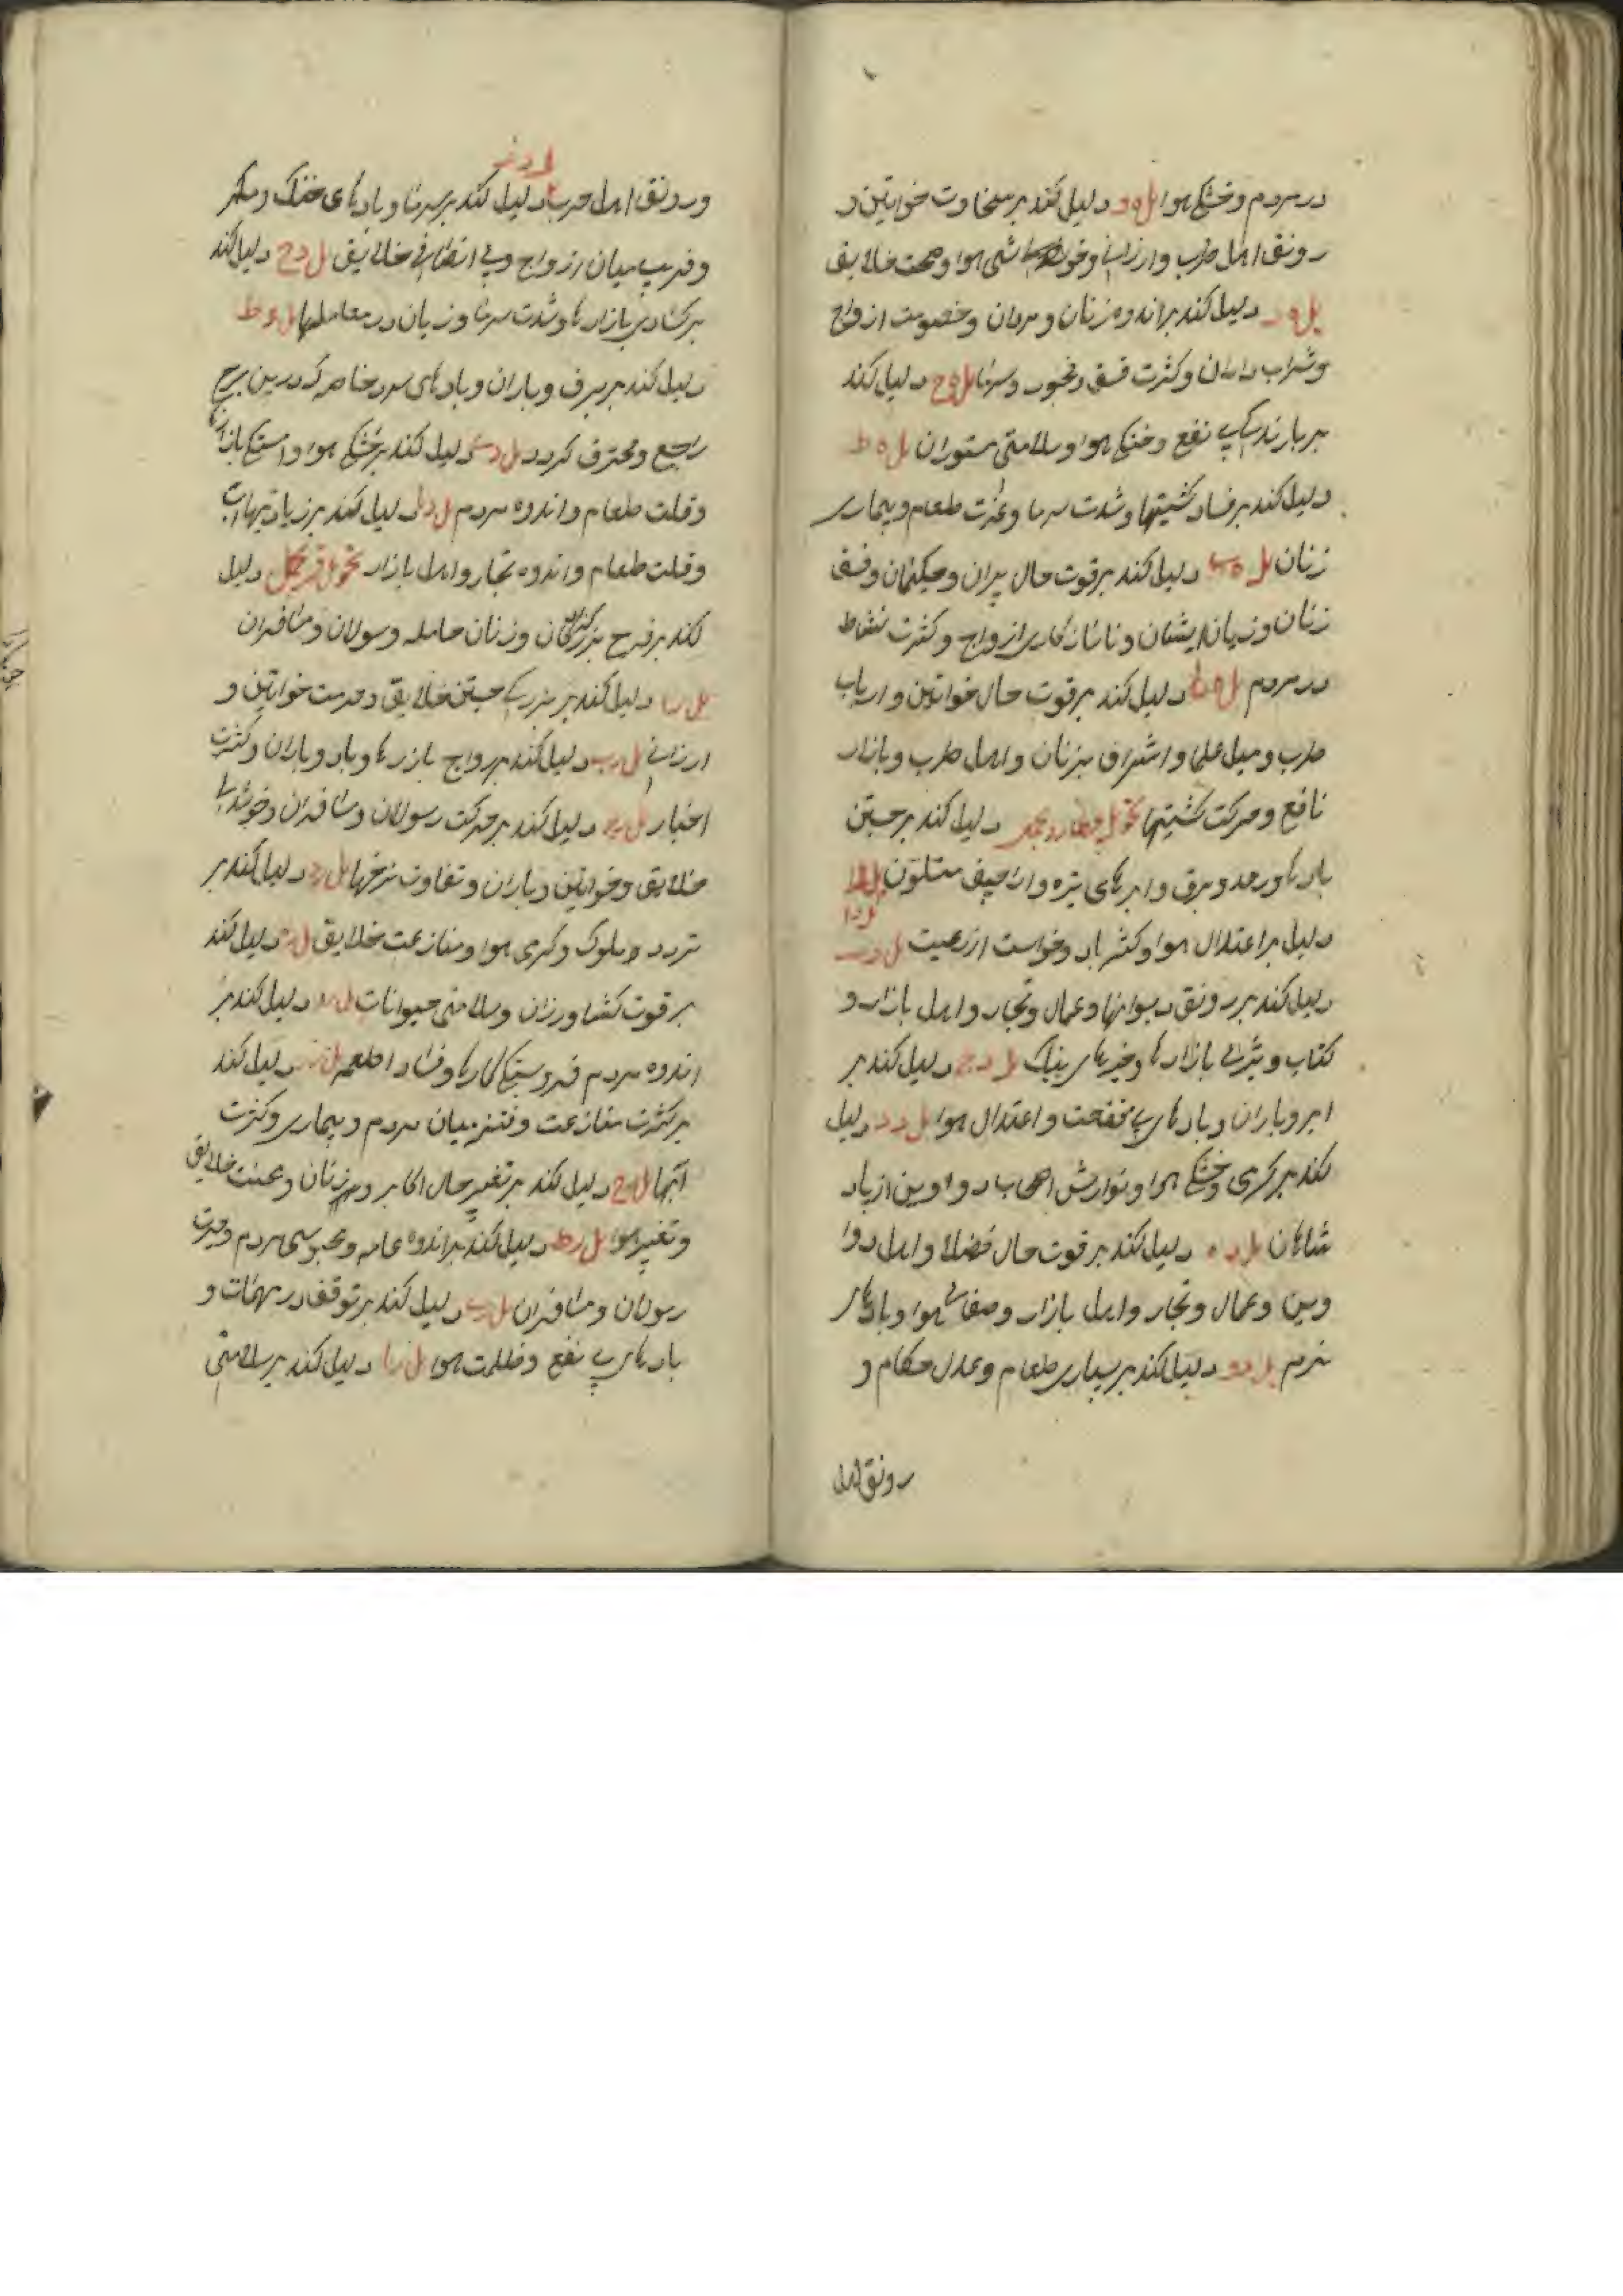 در مردم و خشکی هوا ل ه و دلیل کند بر سخاوت خواتین و
رونق اهل طرب و ارزانی و خوش هوا و صحت خلایق
ل ه ز دلیل کند بر اندوه زنان و مردان و خصومت ازواج
و شراب داران و کثرت فسق و فجور و سرما ل ه ح دلیل کند
بر بارندگی نفع و خنکی هوا و سلامتی ستوران ل ه ط
دلیل کند بر فساد کشتیها و شدت سرما و عزت طعام و بیماری
زنان ل ه ی دلیل کند بر قوت حال پیران و حکیمان و فسق
زنان و زیان ایشان و ناسازکاری ازواج و کثرت نشاط
در مردم ل ه یا دلیل کند بر قوت حال خواتین و ارباب
طرب و میل علما و اشراف بزنان و اهل طرب و بازار
نافع و حرکت کشتیها تحویل عطارد بجدی دلیل کند بر جستن
بادها و رعد و برق و ابرهای تیره و اراجیف متلون
ل د ا
دلیل بر اعتدال هوا و کشر باد و خواست از رعیت ل د ب
دلیل کند بر رونق دیوانها و عمال و تجار و اهل بازار و
کتاب و تیزی بازارها و خبرهای نیک ل د ج دلیل کند بر
ابر و باران و بادهای با منفعت و اعتدال هوا ل د د دلیل
کند بر گرمی و خشکی هوا و نوازش اصحاب دواوین از یاد
شاهان ل د ه دلیل کند بر قوت حال فضلا و اهل دوا
وین و عمال و تجار و اهل بازار و صفای هوا و بادهای
نرم ل د و دلیل کند بر بسیاری طعام و عدل حکام و
رونق اهل
ل د ز
و رونق اهل حرب دلیل کند بر سرما و بادهای خنک و مکر
و فریب میان ازواج و بی انصافی خلایق ل د ح دلیل کند
بر کسادی بازارها و شدت سرما و زیان در معاملها ل د ط
دلیل کند بر برف و باران و بادهای سرد خاصه که درین برج
راجع و محترق گردد ل د ی دلیل کند بر خشکی هوا و
و قلت طعام و اندوه مردم ل د یا دلیل کند بر زیادتی
و قلت طعام و اندوه تجار و اهل بازار تحویل قمر بحمل دلیل
کند بر فرح بزرگان و زنان حامله و رسولان و مسافران
ل ر ا دلیل کند بر جستن خلایق و حرمت خواتین و
ارزانی ل ر ب دلیل کند بر رواج بازارها و باد و باران و کثرت
اخبار ل ر ج دلیل کند بر حرکت رسولان و مسافران و
خلایق و خواتین و باران و تفاوت نرخها ل ر د دلیل کند بر
تردد ملوک و گرمی هوا و منازعت خلایق ل ر ه دلیل کند
بر قوت کشاورزان و سلامتی حیوانات ل ر و دلیل کند بر
اندوه مردم فرو بستگی کارها و فساد اطعمه ل ر ز دلیل کند
بر کثرت منازعت و فتنه میان مردم و بیماری و کثرت
آبها ل ر ح دلیل کند بر تغییر حال اکابر و زنان و محنت خلایق
و تغییر هوا ل ر ط دلیل کند بر اندوه عامه و محبوسی مردم و حیرت
رسولان و مسافران ل ر ی دلیل کند بر توقف در مهمات و
بادهای بی نفع و ظلمت هوا ل ر یا دلیل کند بر سلامتی